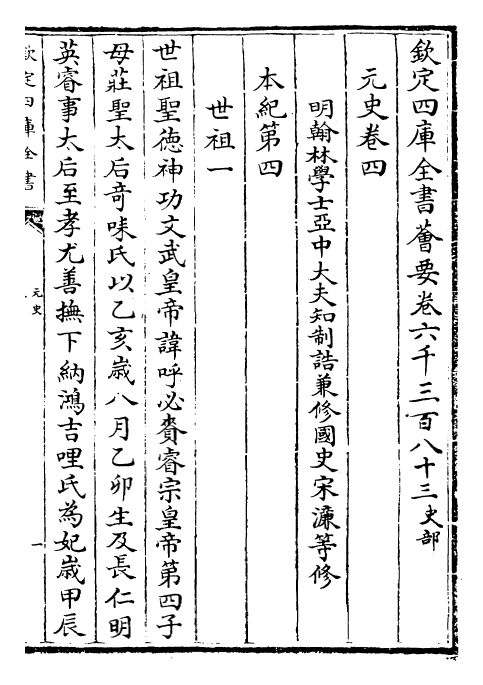 欽定四庫全書薈要卷六千三百八十三史部
元史卷四
明翰林學士亞中大夫知制誥兼修國史宋濂等修
本紀第四
世祖一
世祖聖徳神功文武皇帝諱呼必賚睿宗皇帝第四子
母莊聖太后奇味氏以乙亥歳八月乙卯生及長仁明
英睿事太后至孝尤善撫下納鴻吉哩氏為妃歳甲辰
欽定四庫全書
元史
一